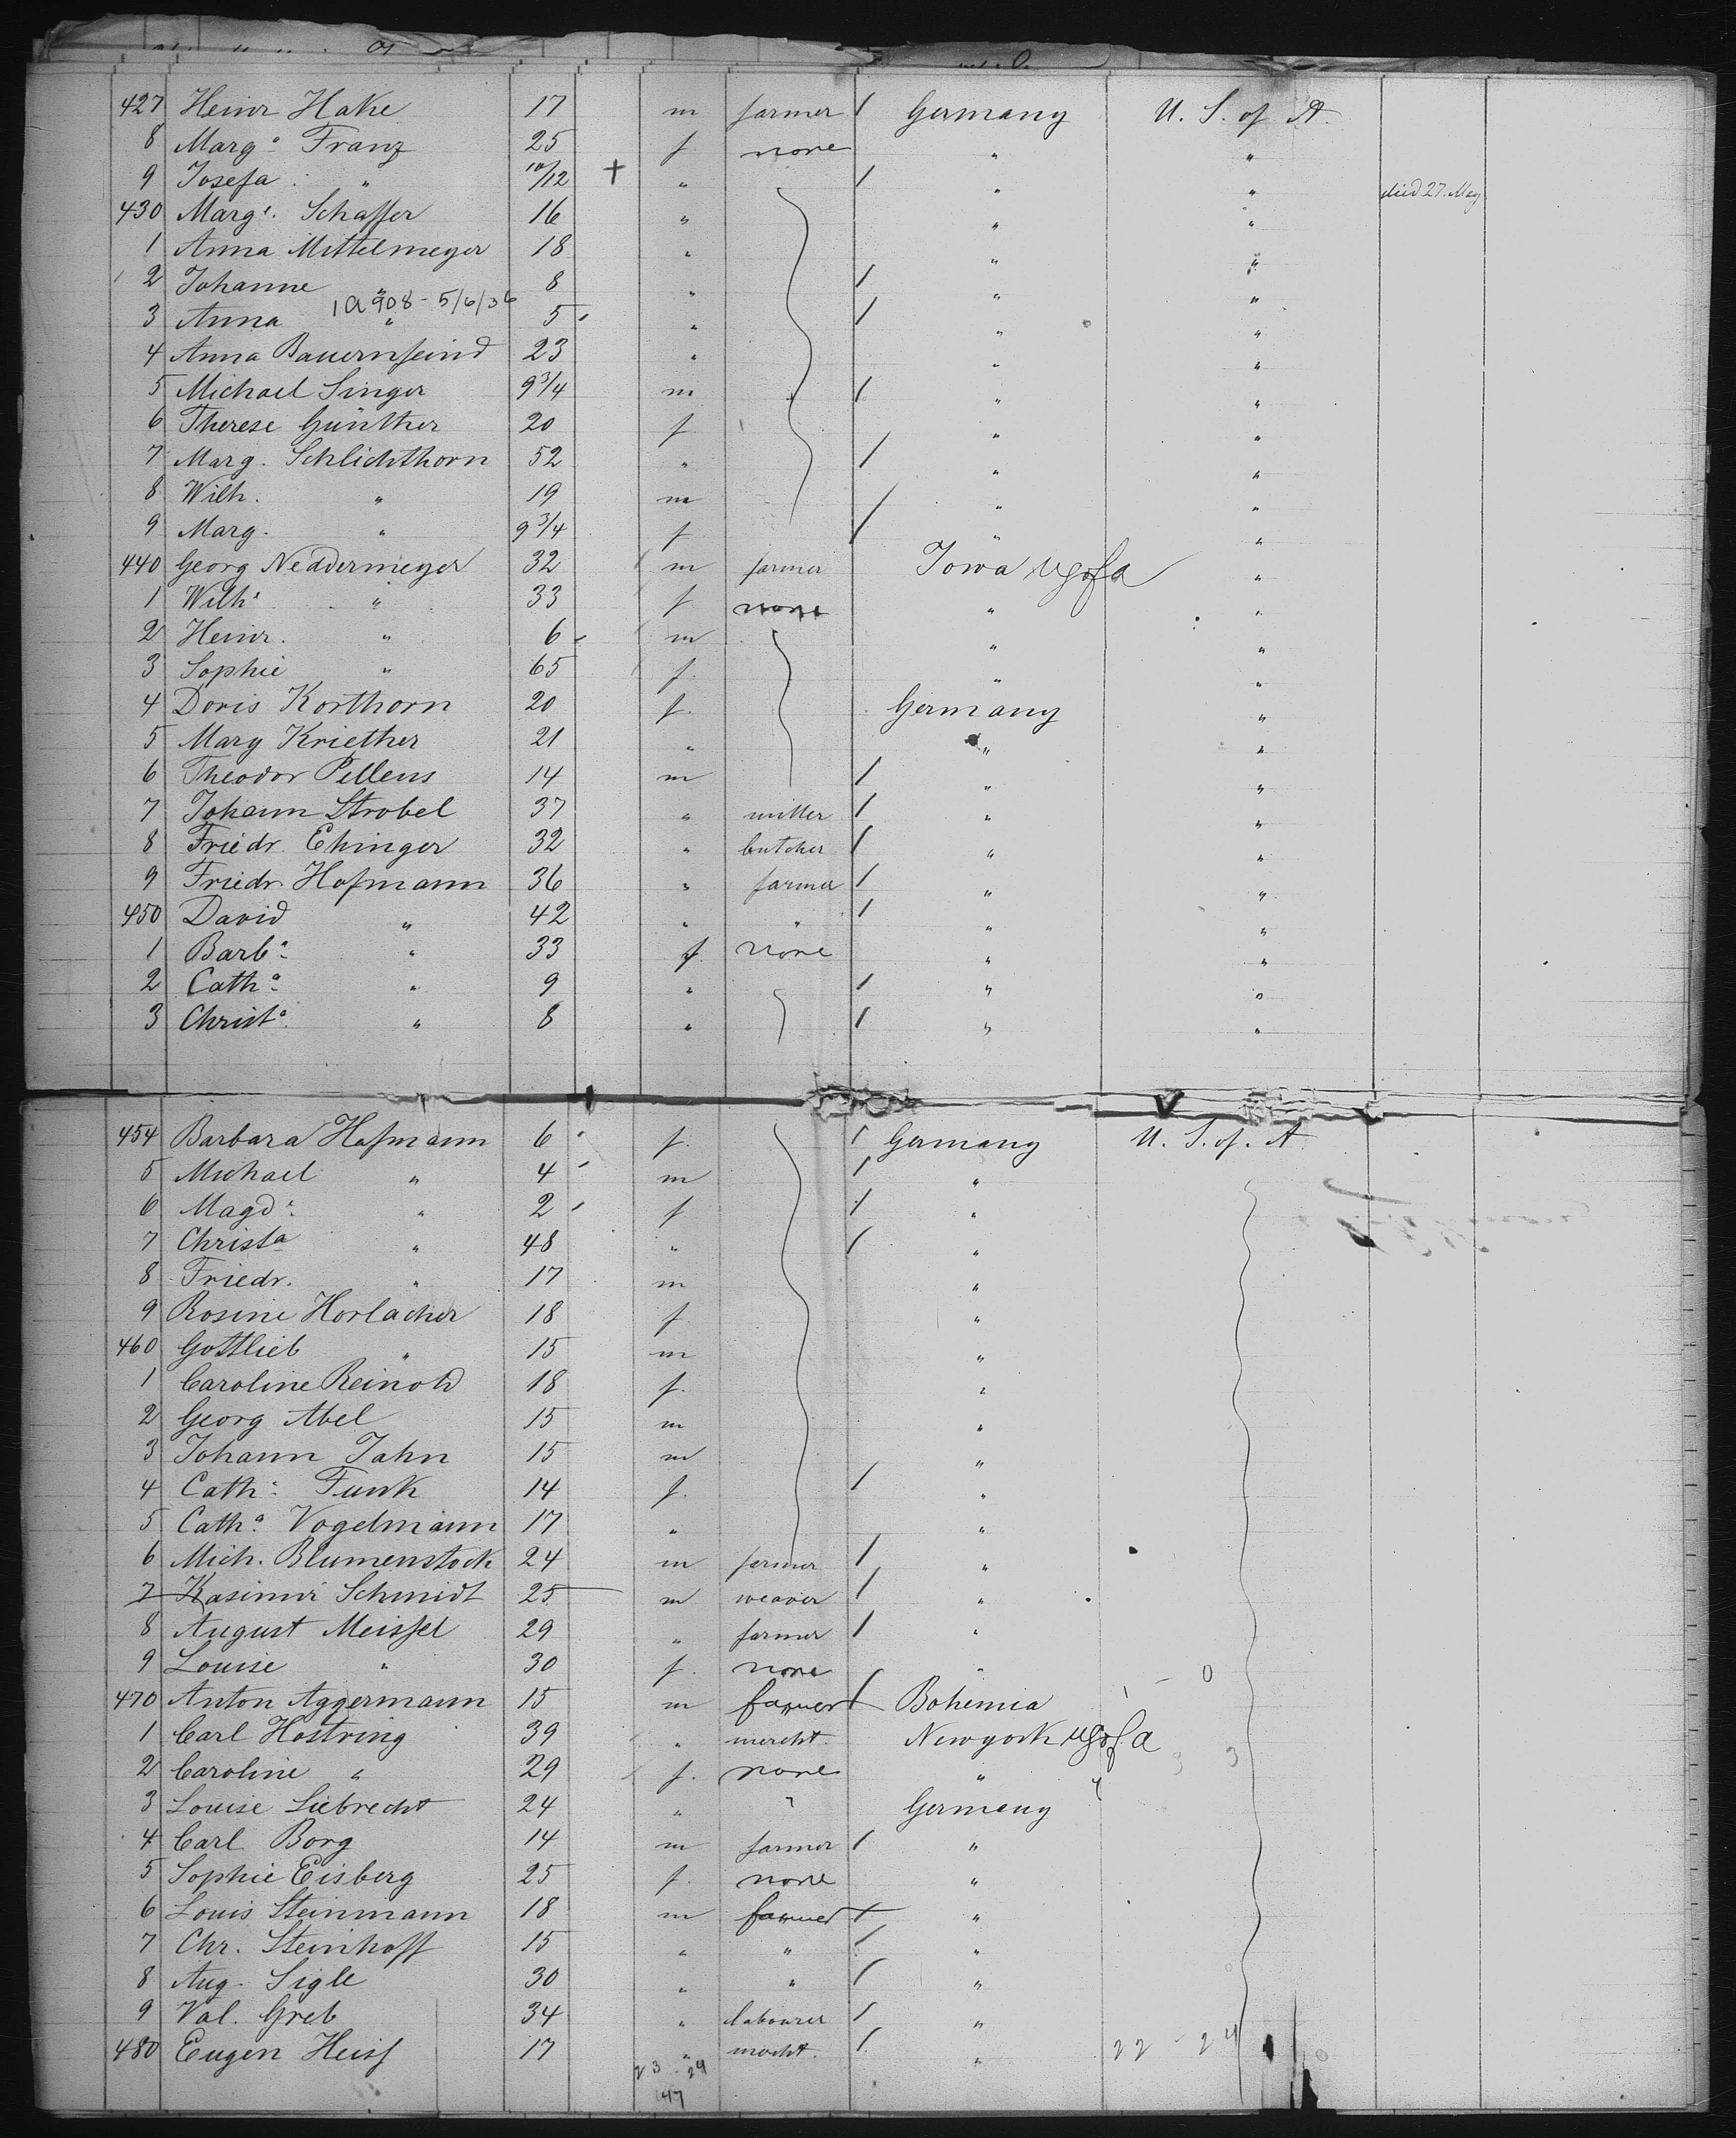 427 Heinr Hake 17 m farmer / Germany U. S. of A.
8 Marg.a Franz 25 f none " "
9 Josefa " 10/12 + " / " " died 27. May
430 Marg.e Schaffer 16 " " "
1 Anna Mittelmeyer 18 " " "
2 Johanne " 8 " / " "
1a 908 - 5/6/36
3 Anna " 5 " / " "
4 Anna Bauernfeind 23 " " "
5 Michael Singer 9 3/4 m / " "
6 Therese Günther 20 f " "
7 Marg. Schlichthorn 52 " / " "
8 Wilh. " 19 m / " "
9 Marg. " 9 3/4 f / " "
440 Georg Neddermeyer 32 m farmer Iowa USofA "
1 Wilhe " 33 f none " "
2 Heinr. " 6 m " "
3 Sophie " 65 f. " "
4 Doris Korthorn 20 f. Germany "
5 Mary Kriether 21 " " "
6 Theodor Pellens 14 m / " "
7 Johann Strobel 37 " miller / " "
8 Friedr. Ehinger 32 " butcher / " "
9 Friedr. Hofmann 36 " farmer / " "
450 David " 42 " " / " "
1 Barb.a " 33 f. none " "
2 Cath.a " 9 " / " "
3 Christ.a " 8 " / " "
454 Barbara Hofmann 6 f. / Germany U. S. of. A
5 Michael " 4 m / "
6 Magd.a " 2 f / "
7 Christa " 48 " / "
8 Friedr. " 17 m "
9 Rosine Horlacher 18 f. "
460 Gottlieb " 15 m "
1 Caroline Reinold 18 f. "
2 Georg Abel 15 m "
3 Johann Jahn 15 m "
4 Cath.a Funk 14 f. / "
5 Cath.a Vogelmann 17 " "
6 Mich. Blumenstock 24 m farmer / "
7 Kasimir Schmidt 25 m weaver / "
8 August Meissel 29 " farmer / "
9 Louise " 30 f. none "
470 Anton Aggermann 15 m farmer / Bohemia
1 Carl Hostring 39 " mercht. Newyork USofA
2 Caroline " 29 f. none "
3 Louise Liebrecht 24 " " Germany
4 Carl Borg 14 m farmer / "
5 Sophie Eisberg 25 f. none "
6 Louis Steinmann 18 m farmer / "
7 Chr. Steinhoff 15 " " / "
8 Aug. Sigle 30 " " / "
9 Val. Greb 34 " labourer / "
480 Eugen Heiss 17 " mercht. / " 22 - 24
23 - 24
47